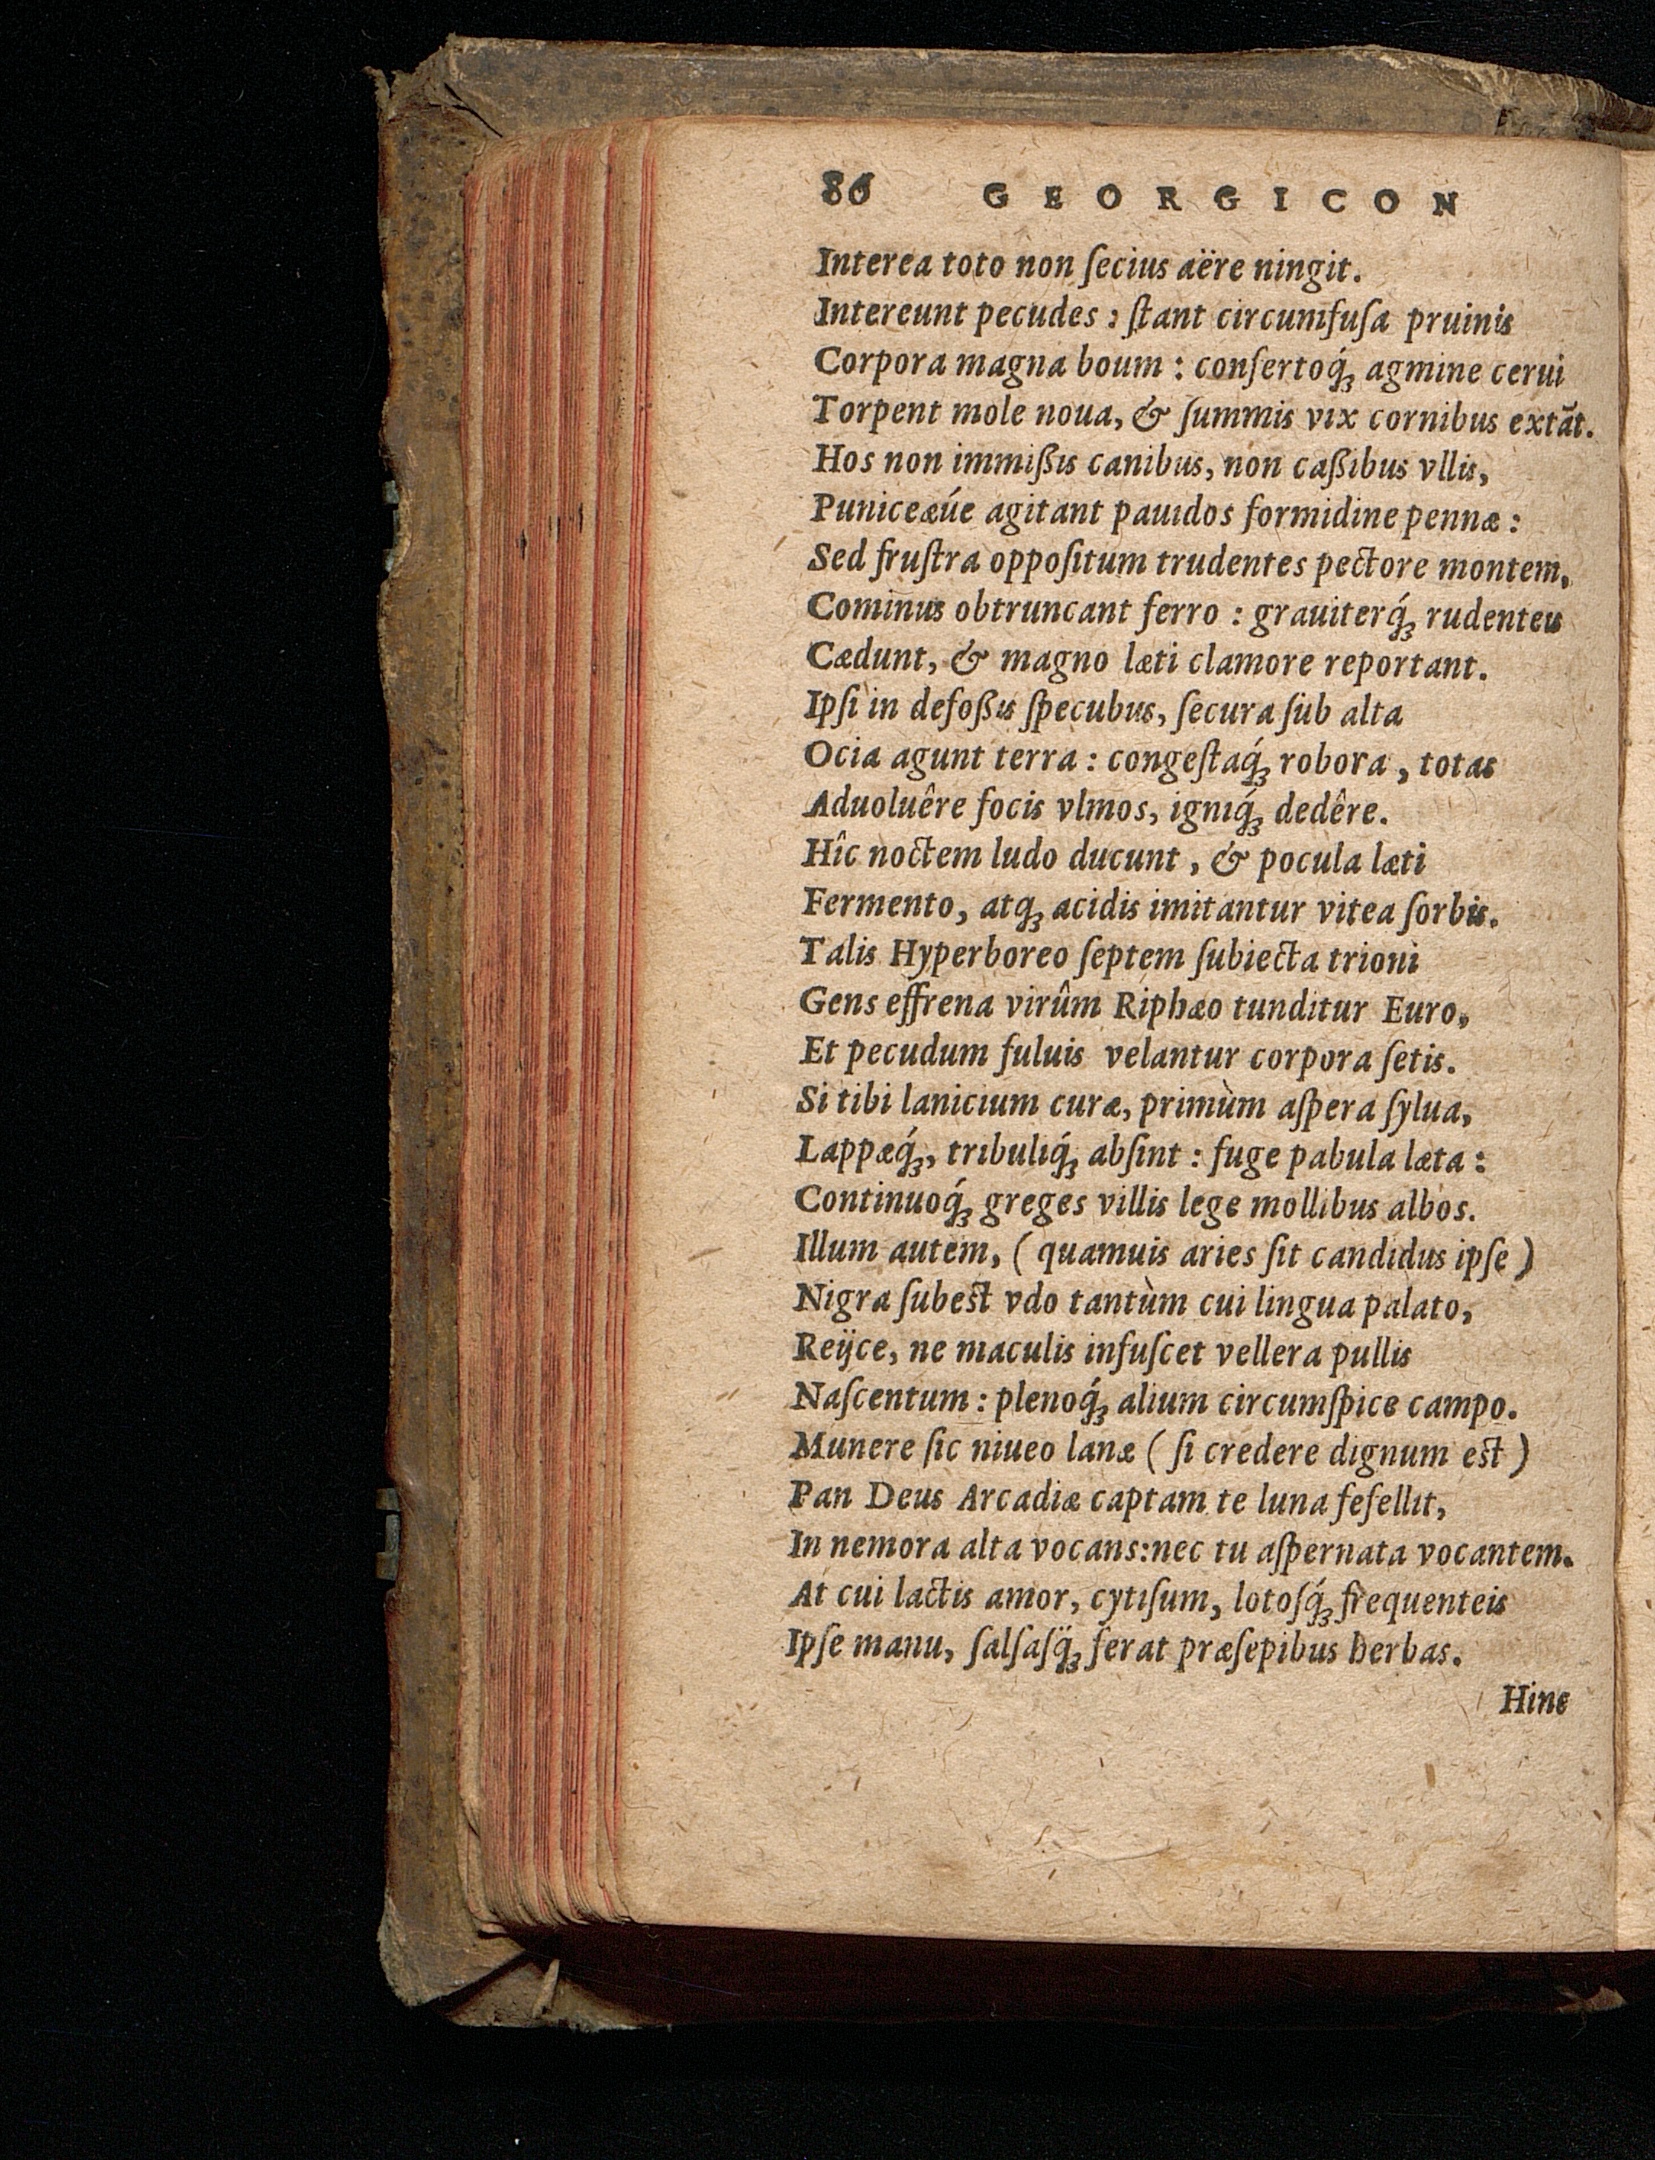 86 GEORGICON
Interea toto non ſecius aëre ningit.
Intereunt pecudes : ſtant circumfuſa pruinis
Corpora magna boum : conſertoq́ꝫ agmine cerui
Torpent mole noua, & ſummis vix cornibus extāt.
Hos non immißis canibus, non caßibus vllis,
Puniceæúe agitant pauidos formidine pennæ :
Sed fruſtra oppoſitum trudentes pectore montem,
Cominus obtruncant ferro : grauiterq́ꝫ rudenteis
Cædunt, & magno læti clamore reportant.
Ipſi in defoßis ſpecubus, ſecura ſub alta
Ocia agunt terra : congeſtaq́ꝫ robora, totas
Aduoluêre focis vlmos, igniq́ꝫ dedêre.
Hîc noctem ludo ducunt, & pocula læti
Fermento, atqꝫ acidis imitantur vitea ſorbis.
Talis Hyperboreo ſeptem ſubiecta trioni
Gens effrena virûm Riphæo tunditur Euro,
Et pecudum fuluis velantur corpora ſetis.
Si tibi lanicium curæ, primùm aſpera ſylua,
Lappæq́ꝫ, tribuliq́ꝫ abſint : fuge pabula læta :
Continuoq́ꝫ greges villis lege mollibus albos.
Illum autem, ( quamuis aries ſit candidus ipſe )
Nigra ſubest vdo tantùm cui lingua palato,
Reijce, ne maculis infuſcet vellera pullis
Naſcentum : plenoq́ꝫ alium circumſpice campo.
Munere ſic niueo lanæ ( ſi credere dignum est )
Pan Deus Arcadiæ captam te luna fefellit,
In nemora alta vocans:nec tu aſpernata vocantem.
At cui lactis amor, cytiſum, lotoſq́ꝫ frequenteis
Ipſe manu, ſalſaſq̈ꝫ ferat præſepibus herbas.
Hinc